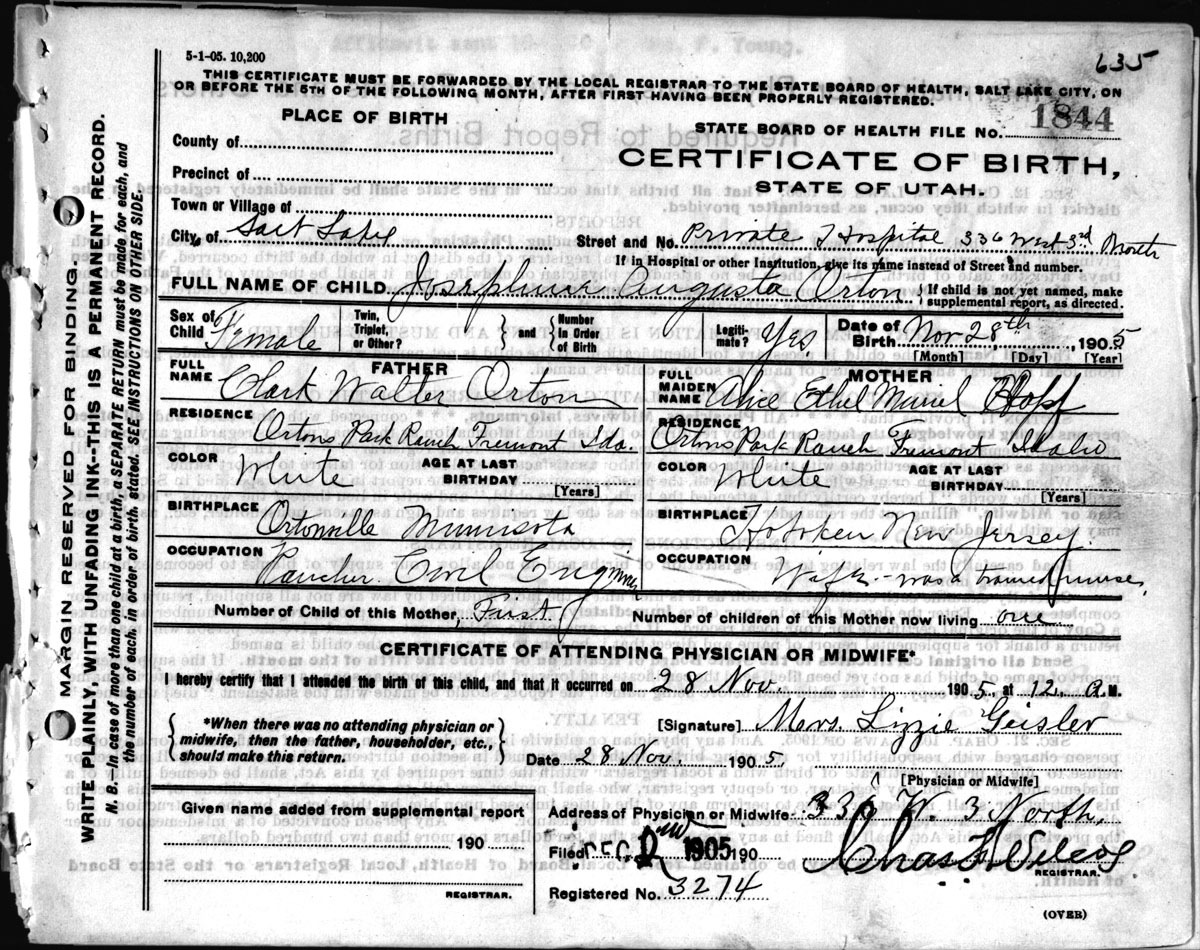 5-1-05. 10,200
635
THIS CERTIFICATE MUST BE FORWARDED BY THE LOCAL REGISTRAR TO THE STATE BOARD OF HEALTH, SALT LAKE CITY, ON
OR BEFORE THE 5TH OF THE FOLLOWING MONTH, AFTER FIRST HAVING BEEN PROPERLY REGISTERED.
PLACE OF BIRTH
STATE BOARD OF HEALTH FILE NO. 1844
County of
CERTIFICATE OF BIRTH,
Precinct of
STATE OF UTAH.
Town or Village of
City of Salt Lake Street and No. Private Hospital 336 West 3rd North
If in Hospital or other Institution, give its name instead of Street and number.
FULL NAME OF CHILD Josephine Augusta Orton { If child is not yet named, make supplemental report, as directed.
Sex of Child Female Twin, Triplet, or Other? } and { Number in Order of Birth Legiti-mate? Yes Date of Birth Nov 28th, 1905
[Month] [Day] [Year]
FATHER
FULL NAME Clark Walter Orton
RESIDENCE
Ortons Park Ranch Fremont Ida.
COLOR White AGE AT LAST BIRTHDAY
[Years]
BIRTHPLACE Ortonville Minnisota
OCCUPATION Rancher Civil Engineer
MOTHER
FULL MAIDEN NAME Alice Ethel Muriel Hopf
RESIDENCE
Ortons Park Ranch Fremont Idaho
COLOR White AGE AT LAST BIRTHDAY
[Years]
BIRTHPLACE Hoboken New Jersey.
OCCUPATION Wife - was a trained nurse
Number of Child of this Mother, First Number of children of this Mother now living one
CERTIFICATE OF ATTENDING PHYSICIAN OR MIDWIFE*
I hereby certify that I attended the birth of this child, and that it occurred on 28 Nov. 1905, at 12, A.M.
{ *When there was no attending physician or midwife, then the father, householder, etc., should make this return. }
[Signature] Mrs. Lizzie Geisler
Date 28 Nov. 1905.
[Physician or Midwife]
Given name added from supplemental report
Address of Physician or Midwife 336 W. 3 North.
190
Filed DEC 2 1905 190 Chas F Wilcox
REGISTRAR.
REGISTRAR.
Registered No. 3274
(OVER)
MARGIN RESERVED FOR BINDING.
WRITE PLAINLY, WITH UNFADING INK--THIS IS A PERMANENT RECORD.
N. B.--In case of more than one child at a birth, a SEPARATE RETURN must be made for each, and
the number of each, in order of birth, stated. SEE INSTRUCTIONS ON OTHER SIDE.